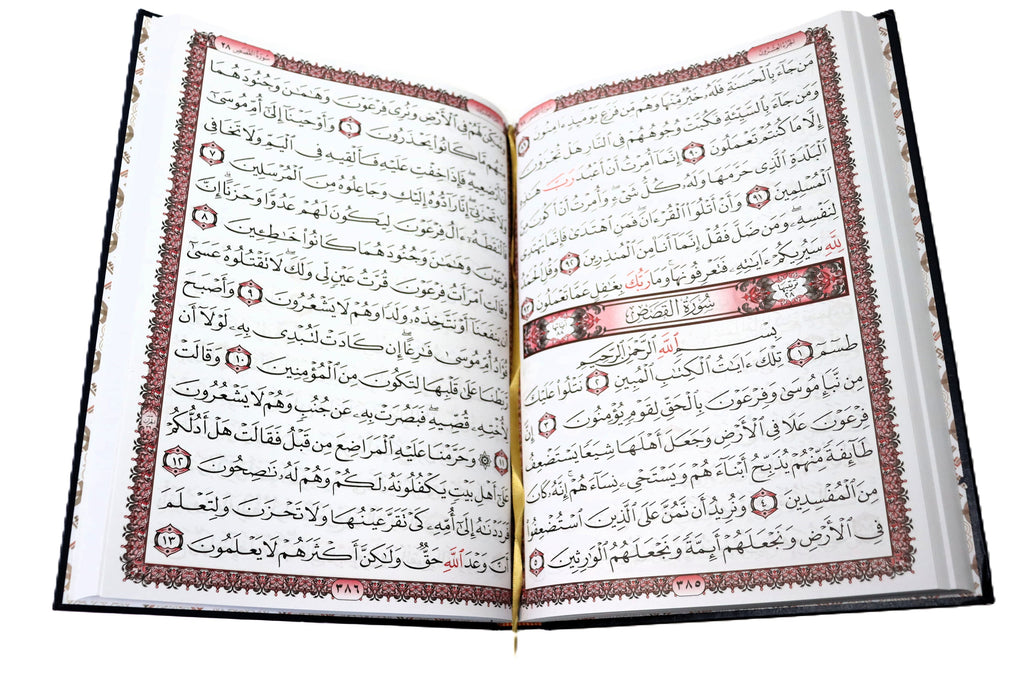 الجزء العشرون
مَن جَآءَ بِٱلْحَسَنَةِ فَلَهُۥ خَيْرٌ مِّنْهَا وَهُم مِّن فَزَعٍ يَوْمَئِذٍ ءَامِنُونَ
وَمَن جَآءَ بِٱلسَّيِّئَةِ فَكُبَّتْ وُجُوهُهُمْ فِى ٱلنَّارِ هَلْ تُجْزَوْنَ
إِلَّا مَا كُنتُمْ تَعْمَلُونَ ٩٠ إِنَّمَآ أُمِرْتُ أَنْ أَعْبُدَ رَبَّ
ٱلْبَلْدَةِ ٱلَّذِى حَرَّمَهَا وَلَهُۥ كُلُّ شَىْءٍ وَأُمِرْتُ أَنْ أَكُونَ
ٱلْمُسْلِمِينَ ٩١ وَأَنْ أَتْلُوَا۟ ٱلْقُرْءَانَ فَمَنِ ٱهْتَدَىٰ فَإِنَّمَا يَهْتَدِى
لِنَفْسِهِۦ وَمَن ضَلَّ فَقُلْ إِنَّمَآ أَنَا۠ مِنَ ٱلْمُنذِرِينَ ٩٢ وَقُلِ ٱلْحَمْدُ
لِلَّهِ سَيُرِيكُمْ ءَايَٰتِهِۦ فَتَعْرِفُونَهَا وَمَا رَبُّكَ بِغَٰفِلٍ عَمَّا تَعْمَلُونَ ٩٣
ترتيبها ٢٨ سُورَةُ القَصَصِ
بِسْمِ ٱللَّهِ ٱلرَّحْمَٰنِ ٱلرَّحِيمِ
طسٓمٓ ١ تِلْكَ ءَايَٰتُ ٱلْكِتَٰبِ ٱلْمُبِينِ ٢ نَتْلُوا۟ عَلَيْكَ
مِن نَّبَإِ مُوسَىٰ وَفِرْعَوْنَ بِٱلْحَقِّ لِقَوْمٍ يُؤْمِنُونَ ٣ إِنَّ
فِرْعَوْنَ عَلَا فِى ٱلْأَرْضِ وَجَعَلَ أَهْلَهَا شِيَعًا يَسْتَضْعِفُ
طَآئِفَةً مِّنْهُمْ يُذَبِّحُ أَبْنَآءَهُمْ وَيَسْتَحْىِۦ نِسَآءَهُمْ إِنَّهُۥ كَانَ
مِنَ ٱلْمُفْسِدِينَ ٤ وَنُرِيدُ أَن نَّمُنَّ عَلَى ٱلَّذِينَ ٱسْتُضْعِفُوا۟
فِى ٱلْأَرْضِ وَنَجْعَلَهُمْ أَئِمَّةً وَنَجْعَلَهُمُ ٱلْوَٰرِثِينَ ٥
٣٨٥
سورة القصص ٢٨
وَنُمَكِّنَ لَهُمْ فِى ٱلْأَرْضِ وَنُرِىَ فِرْعَوْنَ وَهَٰمَٰنَ وَجُنُودَهُمَا
مِنْهُم مَّا كَانُوا۟ يَحْذَرُونَ ٦ وَأَوْحَيْنَآ إِلَىٰٓ أُمِّ مُوسَىٰٓ
أَنْ أَرْضِعِيهِ فَإِذَا خِفْتِ عَلَيْهِ فَأَلْقِيهِ فِى ٱلْيَمِّ وَلَا تَخَافِى
وَلَا تَحْزَنِىٓ إِنَّا رَآدُّوهُ إِلَيْكِ وَجَاعِلُوهُ مِنَ ٱلْمُرْسَلِينَ ٧
فَٱلْتَقَطَهُۥٓ ءَالُ فِرْعَوْنَ لِيَكُونَ لَهُمْ عَدُوًّا وَحَزَنًا إِنَّ
فِرْعَوْنَ وَهَٰمَٰنَ وَجُنُودَهُمَا كَانُوا۟ خَٰطِـِٔينَ ٨
وَقَالَتِ ٱمْرَأَتُ فِرْعَوْنَ قُرَّتُ عَيْنٍ لِّى وَلَكَ لَا تَقْتُلُوهُ عَسَىٰٓ
أَن يَنفَعَنَآ أَوْ نَتَّخِذَهُۥ وَلَدًا وَهُمْ لَا يَشْعُرُونَ ٩ وَأَصْبَحَ
فُؤَادُ أُمِّ مُوسَىٰ فَٰرِغًا إِن كَادَتْ لَتُبْدِى بِهِۦ لَوْلَآ أَن
رَّبَطْنَا عَلَىٰ قَلْبِهَا لِتَكُونَ مِنَ ٱلْمُؤْمِنِينَ ١٠ وَقَالَتْ
لِأُخْتِهِۦ قُصِّيهِ فَبَصُرَتْ بِهِۦ عَن جُنُبٍ وَهُمْ لَا يَشْعُرُونَ
١١ ۞ وَحَرَّمْنَا عَلَيْهِ ٱلْمَرَاضِعَ مِن قَبْلُ فَقَالَتْ هَلْ أَدُلُّكُمْ
عَلَىٰٓ أَهْلِ بَيْتٍ يَكْفُلُونَهُۥ لَكُمْ وَهُمْ لَهُۥ نَٰصِحُونَ ١٢
فَرَدَدْنَٰهُ إِلَىٰٓ أُمِّهِۦ كَىْ تَقَرَّ عَيْنُهَا وَلَا تَحْزَنَ وَلِتَعْلَمَ
أَنَّ وَعْدَ ٱللَّهِ حَقٌّ وَلَٰكِنَّ أَكْثَرَهُمْ لَا يَعْلَمُونَ ١٣
٣٨٦